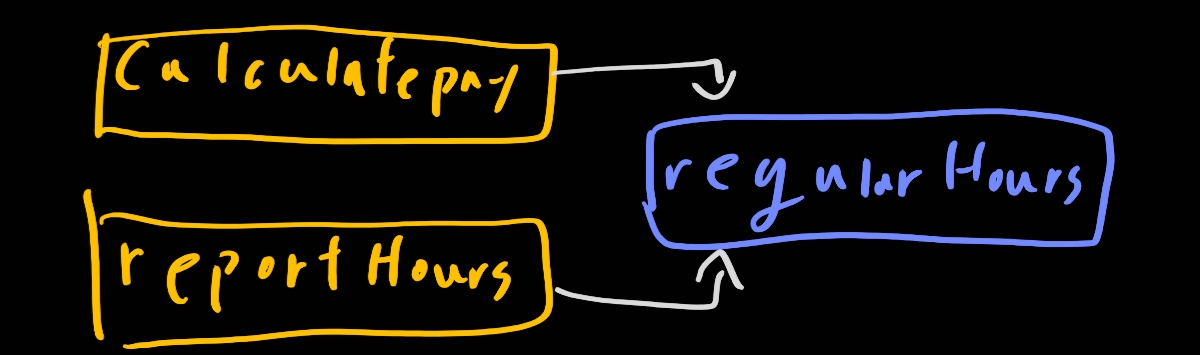 Calculatepay
reportHours
regularHours